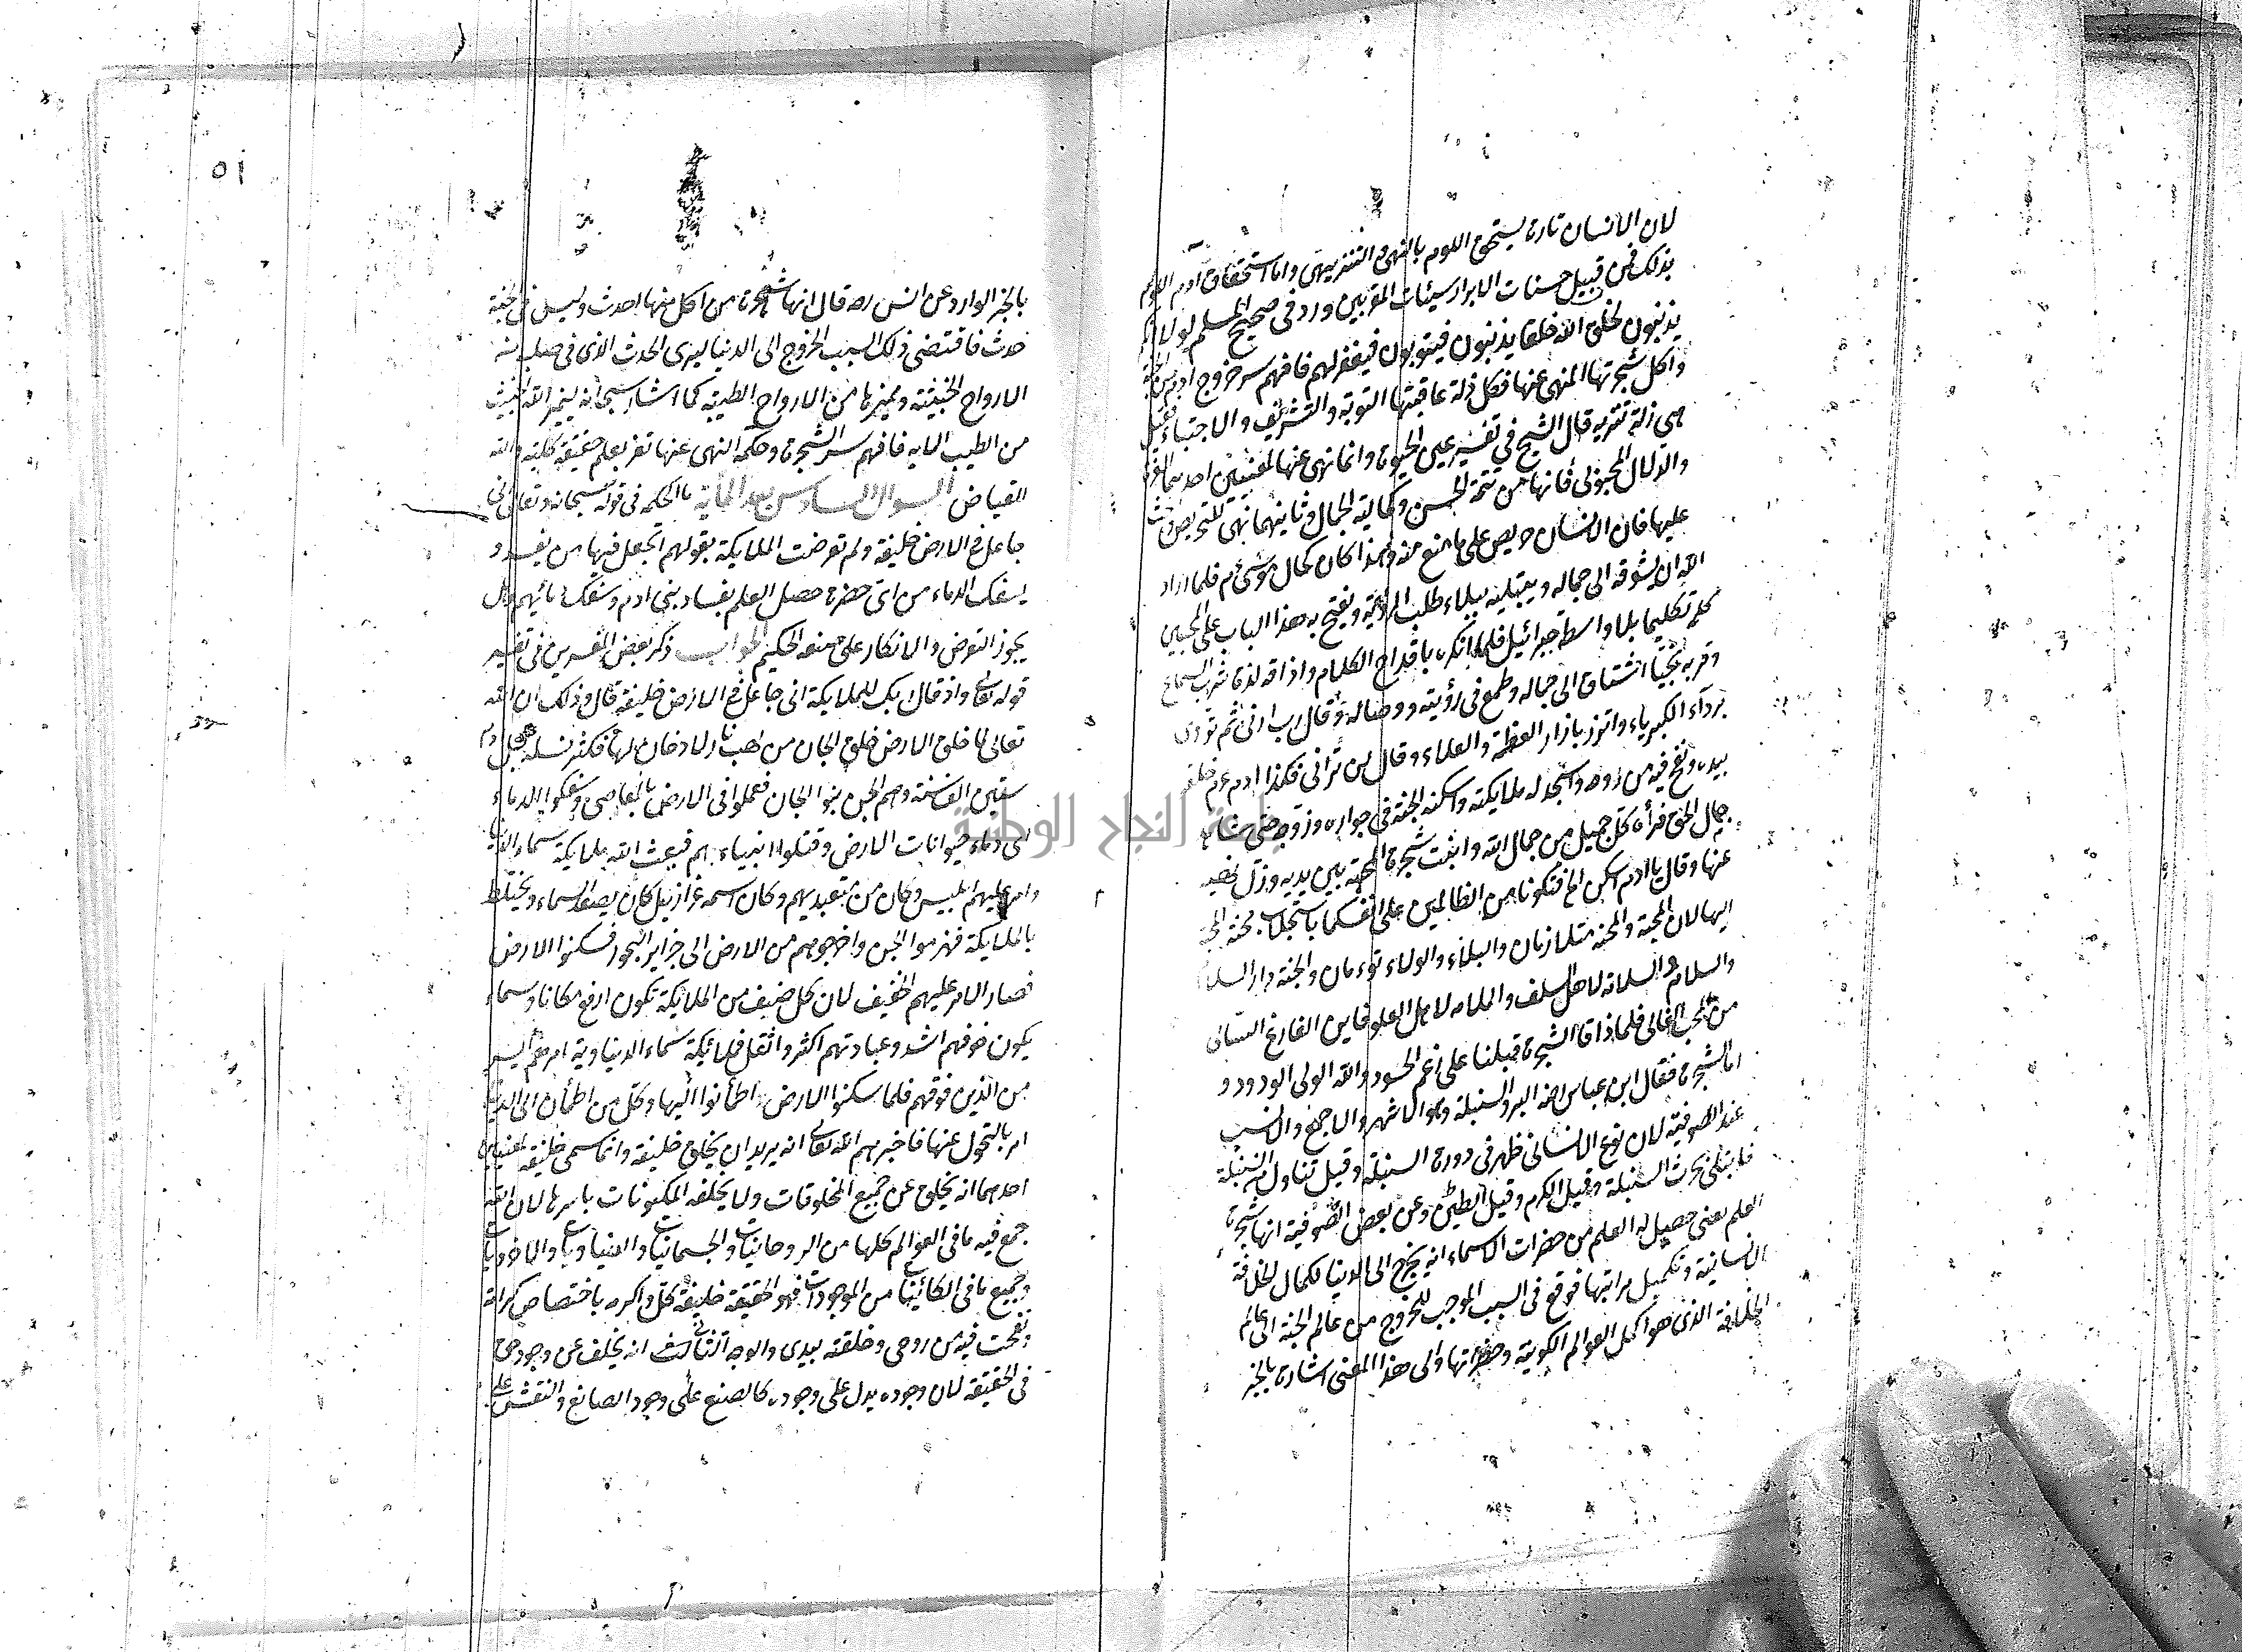 لان الانسان تارة يستحق اللوم بالنهى التنزيهى واما استحقاق ادم اللوم
بذلك فمن قبيل حسنات الابرار سيئات المقربين ورد فى صحيح المسلم لولا
يذنبون لخلق الله خلقا يذنبون فيتوبون فيغفر لهم فافهم سر خروج ادم من الجنة
واكل شجرتها المنهى عنها فكل زلة عاقبتها التوبة والتشريف والاجتباء
هى زلة تنزيه قال الشيخ فى تفسير عين الحيوة وانما نهى عنها لمعنيين احدهما
والدلال المحبوبى فانها من تتمة الحسن وكمالية الجمال وثانيهما نهى تحريص
عليها فان الانسان حريص على ما منع منه وهذا كان كحال موسى عم فلما اراد
الله ان يشوقه الى جماله ويبتليه ببلاء طلب الرؤية ويفتح به هذا الباب على المحبين
كلمه تكليما بلا واسطة جبرائيل فلما اسكره باقداح الكلام واذاقه لذة شراب السماع
وقربه نجيا اشتاق الى جماله وطمع فى رؤيته ووصاله وقال رب ارنى ثم تردى
برداء الكبرياء واتزر بازار العظمة والعلاء وقال لن ترانى فكذا ادم عم خلقه
بيده ونفخ فيه من روحه واسجد له ملايكته واسكنه الجنة فى جواره وزوجه
جمال الحق فراى كل جميل من جمال الله وانبتت شجرة المحبة بين يديه
عنها وقال يا ادم اسكن الخ فتكونا من الظالمين على انفسكما باستجلاب محنة المحبة
اليها لان المحبة والمحنة متلازمان والبلاء والولاء توءمان والجنة دار السلام
والسلام والسلامة لاهل السلف والملامة لاهل
من المحب الغالى فلما ذاقا الشجرة قبلنا على رغم الحسود والله الولى الودود و
اما الشجرة فقال ابن عباس رضه البر والسنبلة وهو الاشهر والاجمع والانسب
عند الصوفية لان نوع الانسانى ظهر فى دورة السنبلة وقيل تناول السنبلة
فابتلى بحرث السنبلة وقيل الكرم وقيل التين وعن بعض الصوفية انها شجرة
العلم يعنى حصل له العلم من حضرات الاسماء انه يخرج الى الدنيا لكمال الخلافة
الانسانية وتكميل مراتبها فوقع فى السبب الموجب للخروج من عالم الجنة الى عالم
الخلافة الذى هو اكمل العوالم الكونية وحضراتها والى هذا المعنى اشارة بالخبر
٥١
بالخبر الوارد عن انس رضه قال انها شجرة من اكل منها احدث وليس فى الجنة
حدث فاقتضى ذلك السبب الخروج الى الدنيا ليرى الحدث الذى فى صلبه
الارواح الخبيثة وتميزها من الارواح الطيبة كما اشار سبحانه ليميز الله الخبيث
من الطيب الاية فافهم سر الشجرة وحكمة النهى عنها تفز بعلم حقيقة كلية والله
الفياض السوال السادس بعد المأية ما الحكمة فى قوله سبحانه وتعالى انى
جاعل فى الارض خليفة ولم تعرضت الملايكة بقولهم اتجعل فيها من يفسد و
يسفك الدماء من اى حضرة حصل العلم بفساد بنى ادم وسفك دمائهم وهل
يجوز التعرض والانكار على صنعه الحكيم الجواب ذكر بعض المفسرين فى تفسير
قوله تعالى واذ قال ربك للملايكة انى جاعل فى الارض خليفة قال وذلك ان الله
تعالى لما خلق الارض خلق الجان من لهب نار لا دخان لها فكثر نسله قبل ادم
ستين الف سنة وهم الجن بنوا الجان فعملوا فى الارض بالمعاصى وسفكوا الدماء
اى دماء حيوانات الارض وقتلوا انبياءهم فبعث الله ملايكة سماء الدنيا
وامر عليهم ابليس وكان من متعبديهم وكان اسمه عزازيل كان يصعد السماء ويختلط
بالملايكة فهزموا الجن واخرجوهم من الارض الى جزاير البحور فسكنوا الارض
فصار الامر عليهم الخفيف لان كل صنف من الملايكة تكون ارفع مكانا وسماء
يكون خوفهم اشد وعبادتهم اكثر واثقل فملائكة سماء الدنياوية امرهم ايسر
من الذين فوقهم فلما سكنوا الارض اطمأنوا اليها وكل من اطمأن الى الدنيا
امر بالتحول عنها فاخبرهم الله تعالى انه يريد ان يخلق خليفة وانما سمى خليفة لمعنيين
احدهما انه يخلق عن جميع المخلوقات ولا يخلفه المكونات باسرها لان الله
جمع فيه ما فى العوالم كلها من الروحانيات والجسمانيات والدنياويات والاخرويات
وجميع ما فى الكائنات من الموجودات فهو الحقيقة خليفة كل واكرمه باختصاص كرامة
ونفخت فيه من روحى وخلقته بيدى والوجه الثالث انه يخلف عن وجود حق
فى الحقيقة لان وجوده يدل على وجوده كالصنع على وجود الصانع والنقش على
جامعة النجاح الوطنية